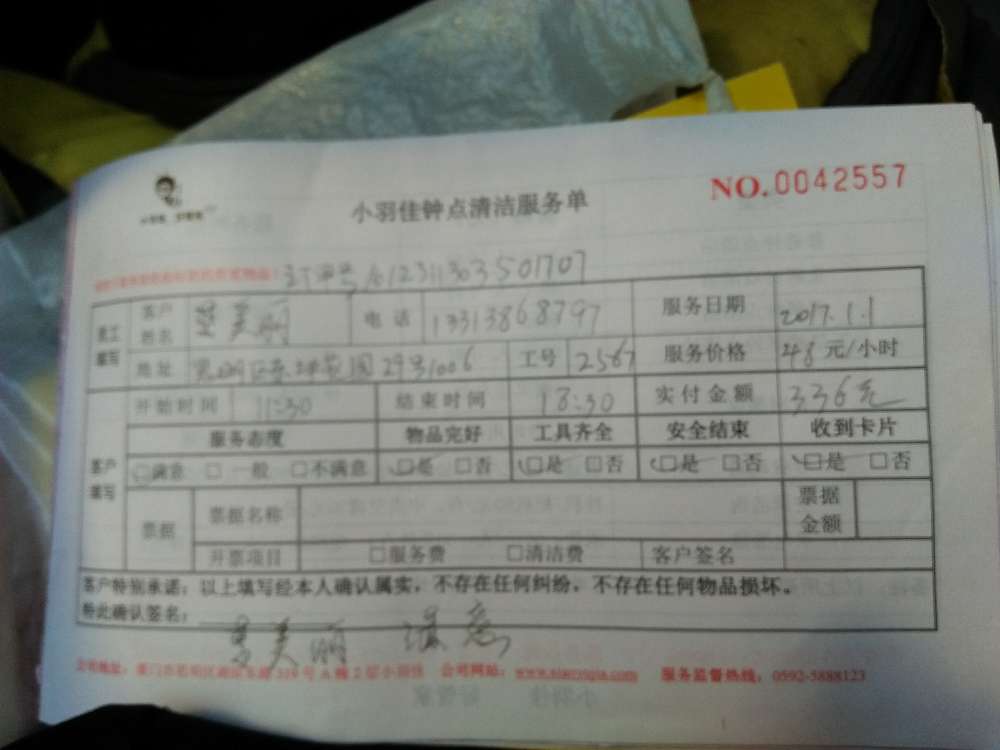 小羽佳钟点清洁服务单
NO.0042557
订单号1612311363501707
员工填写 客户姓名 美丽 电话 13313868797 服务日期 2017.1.1
地址 29号1006 工号 2567 服务价格 48元/小时
开始时间 11:30 结束时间 18:30 实付金额 336元
客户填写 服务态度 物品完好 工具齐全 安全结束 收到卡片
□满意 □一般 □不满意 □是 □否 □是 □否 □是 □否 □是 □否
票据 票据名称 票据金额
开票项目 □服务费 □清洁费 客户签名
客户特别承诺：以上填写经本人确认属实，不存在任何纠纷，不存在任何物品损坏。
特此确认签名：
美丽 满意
公司地址：厦门市思明区 号A栋2层小羽佳 公司网站： 服务监督热线：0592-5888123